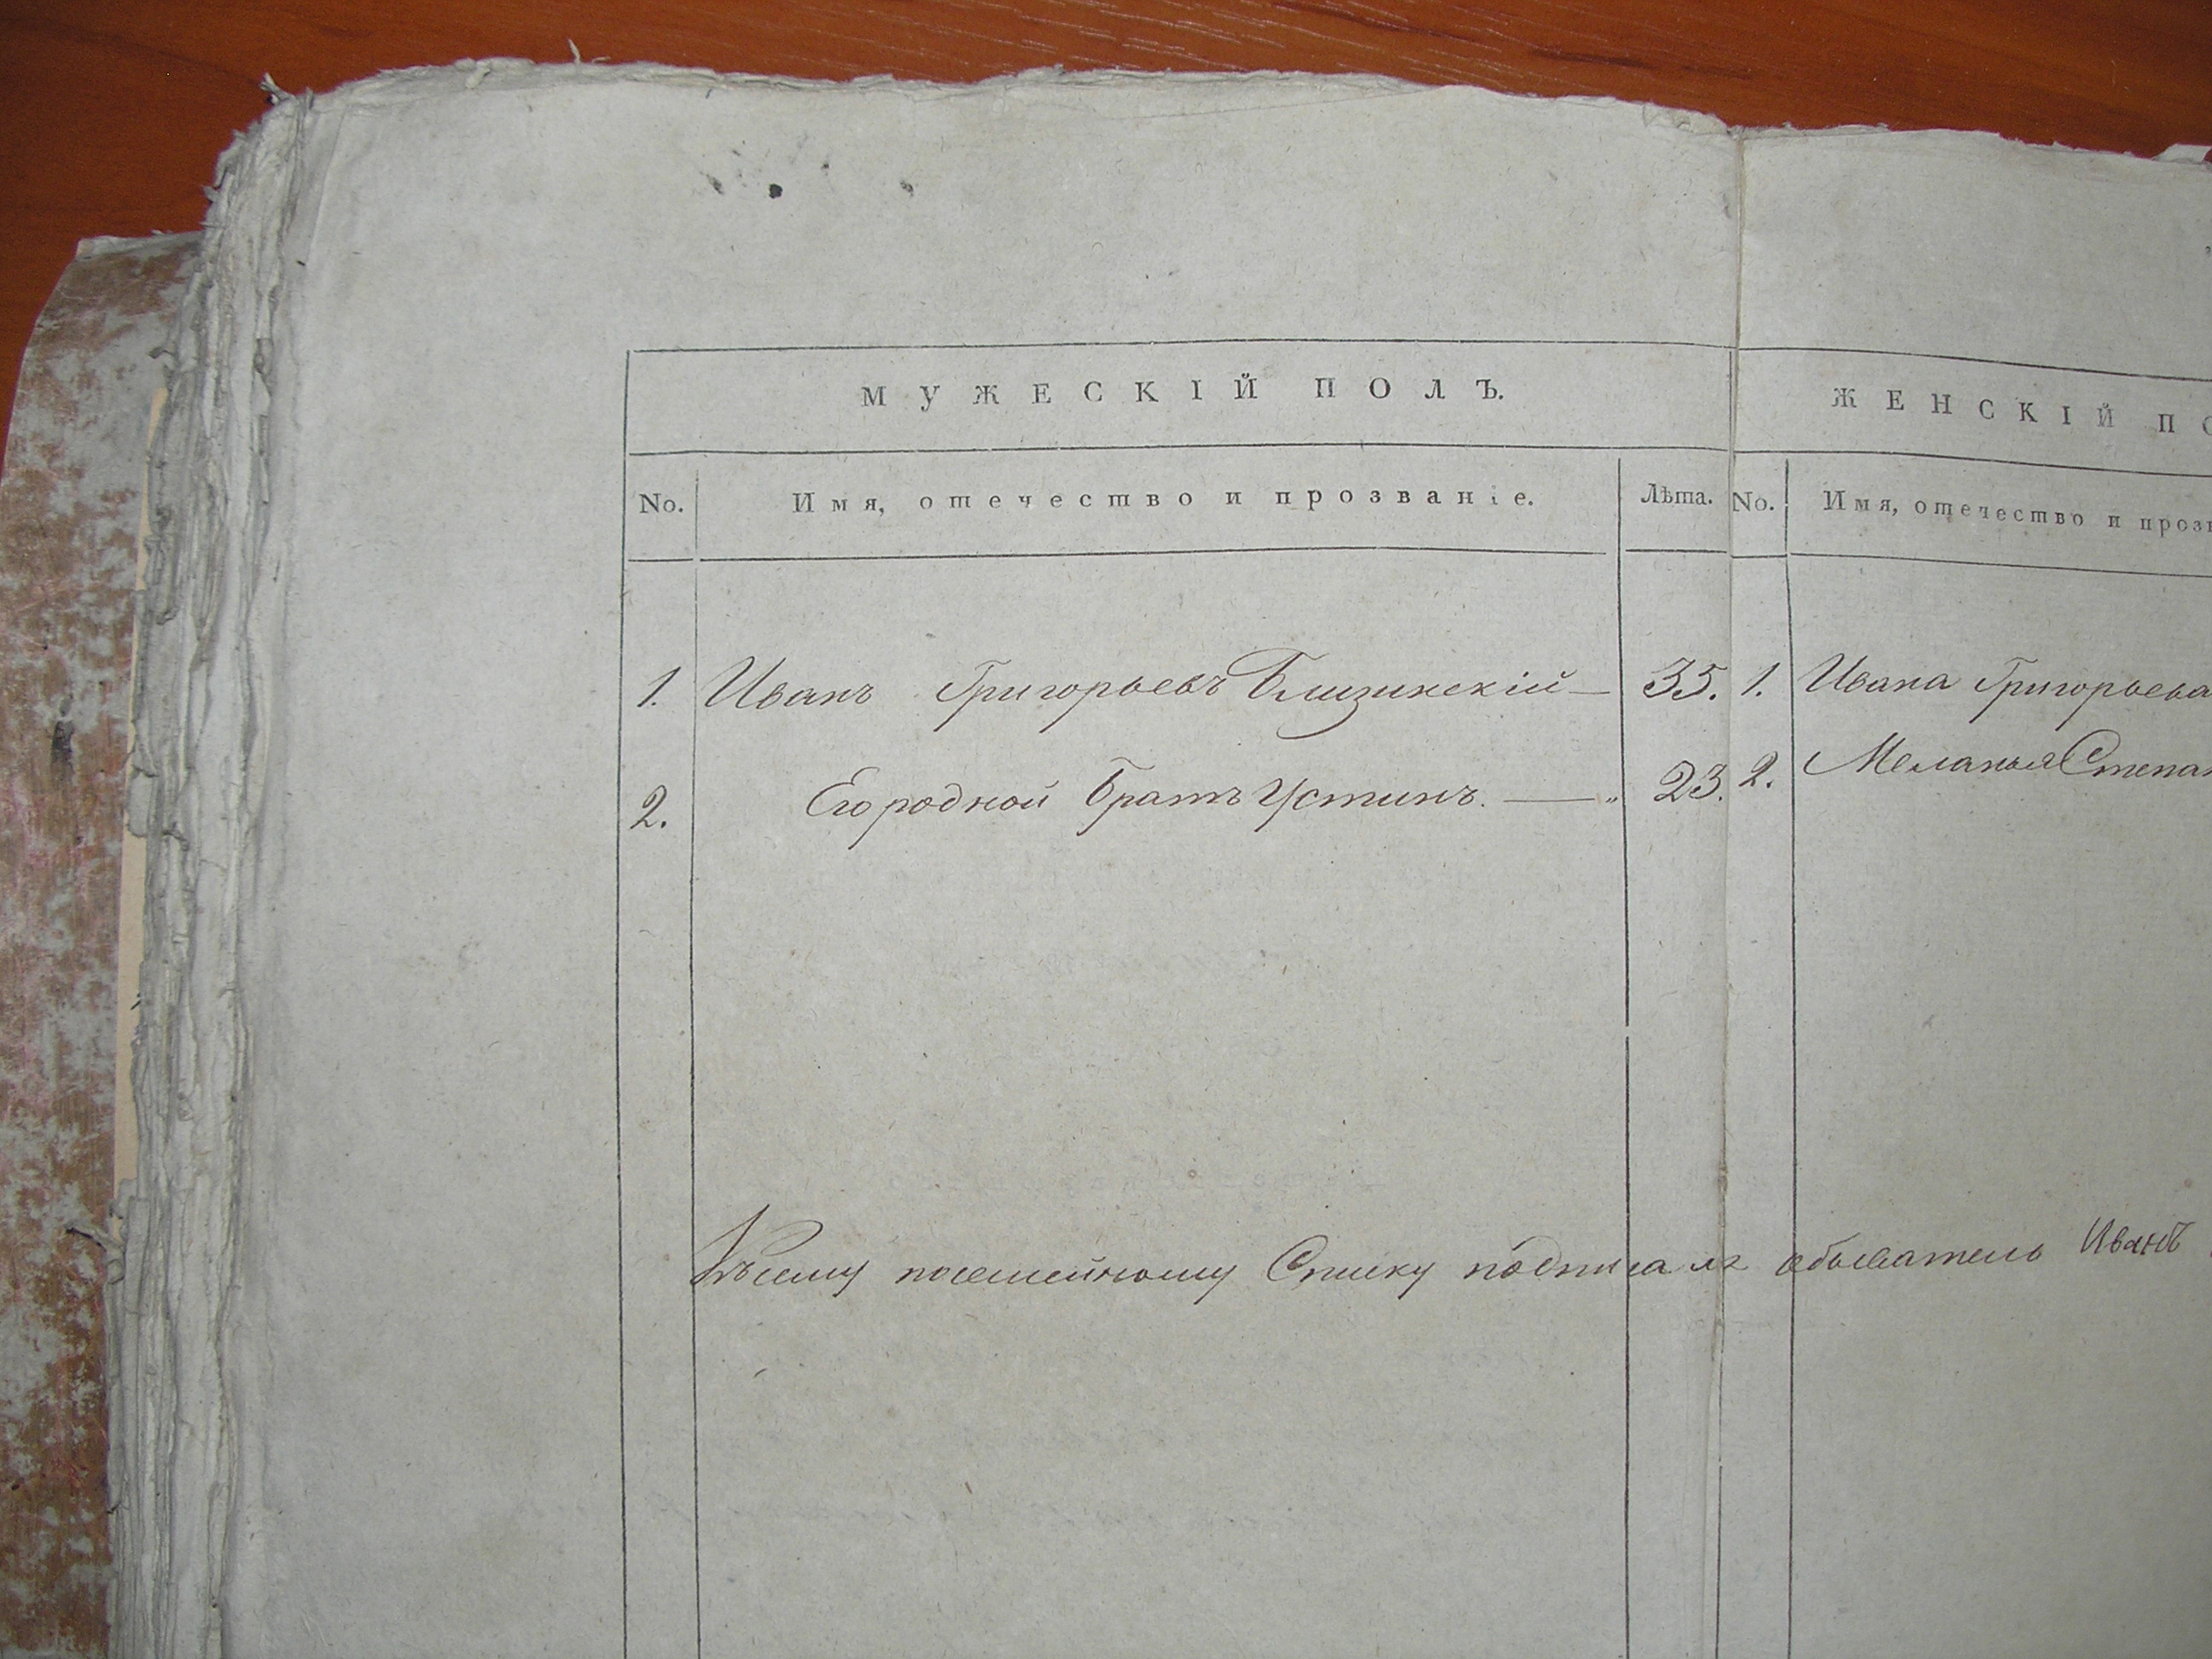 МУЖЕСКІЙ ПОЛЪ.
ЖЕНСКІЙ ПО
No. Имя, отечество и прозваніе. Лѣта.
No. Имя, отечество и прозв
1. Иванъ Григорьевъ Близинскій — 35.
2. Его родной Братъ Устинъ. — „ 23.
1. Ивана Григорьева
2. Меланья Степан
Къ сему посемейному Списку подписался обыватель Иванъ